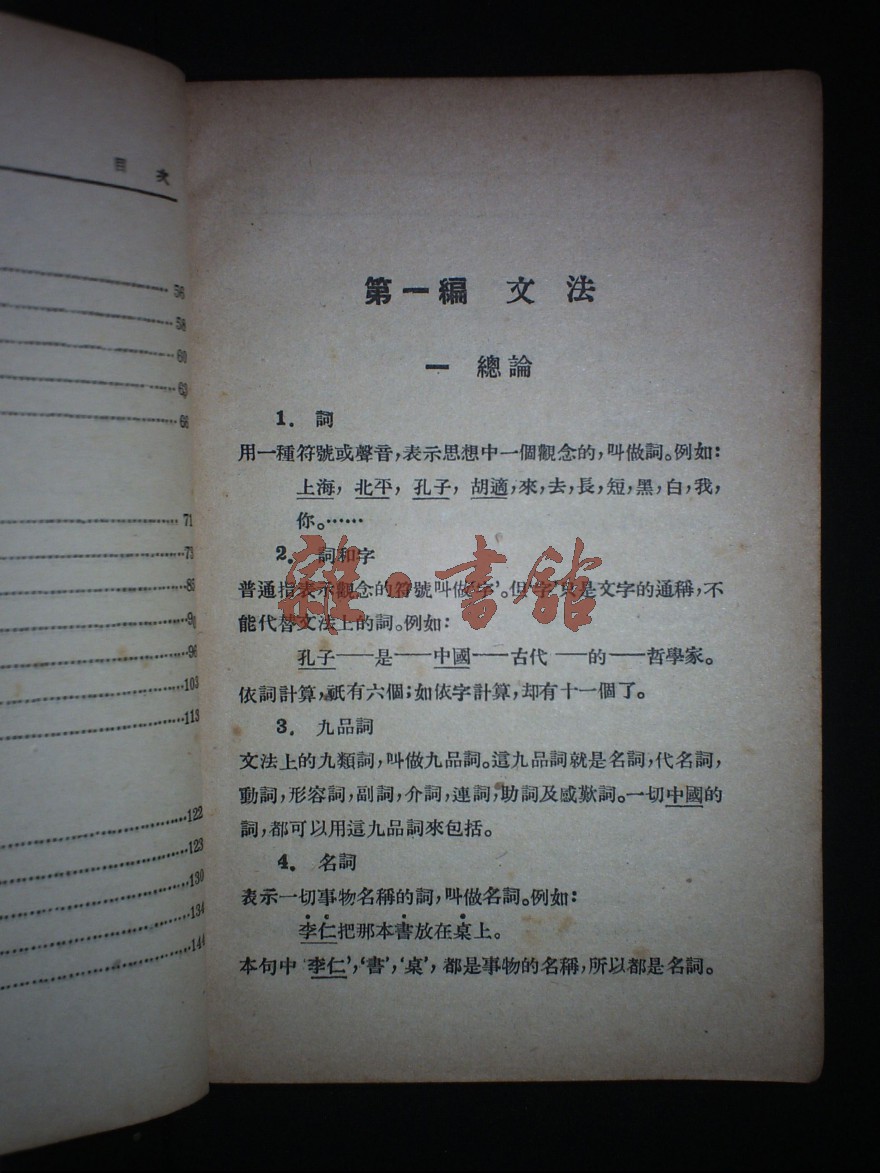 目次
56
58
60
63
66
71
73
85
96
103
113
122
123
130
134
144
第一編 文法
一 總論
1. 詞
用一種符號或聲音,表示思想中一個觀念的,叫做詞。例如:
上海,北平,孔子,胡適,來,去,長,短,黑,白,我,
你。……
2. 詞和字
普通指表示觀念的符號叫做‘字’。但‘字’只是文字的通稱,不
能代替文法上的詞。例如:
孔子——是——中國——古代——的——哲學家。
依詞計算,祇有六個;如依字計算,却有十一個了。
3. 九品詞
文法上的九類詞,叫做九品詞。這九品詞就是名詞,代名詞,
動詞,形容詞,副詞,介詞,連詞,助詞及感歎詞。一切中國的
詞,都可以用這九品詞來包括。
4. 名詞
表示一切事物名稱的詞,叫做名詞。例如:
李仁把那本書放在桌上。
本句中‘李仁’,‘書’,‘桌’,都是事物的名稱,所以都是名詞。
雜·書館